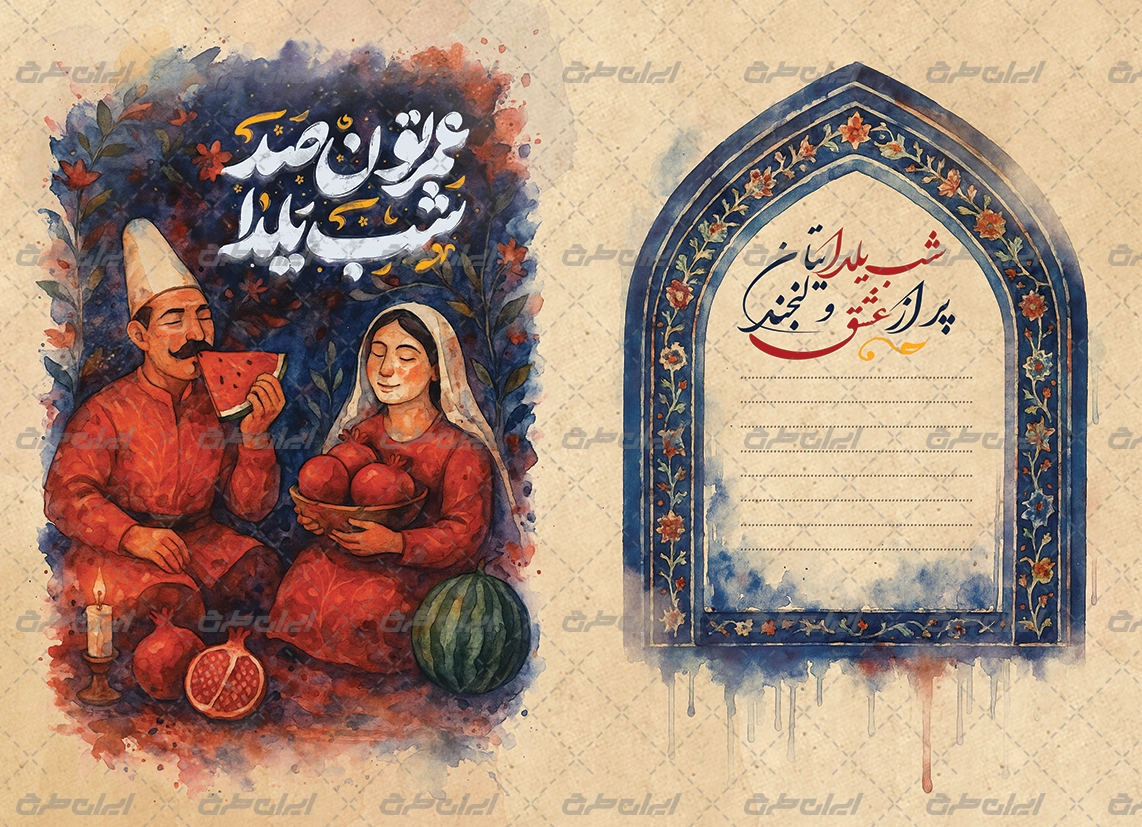 عمرتون صد
شب یلدا
شب یلدایتان
پر از عشق و لبخند
ایران طرح